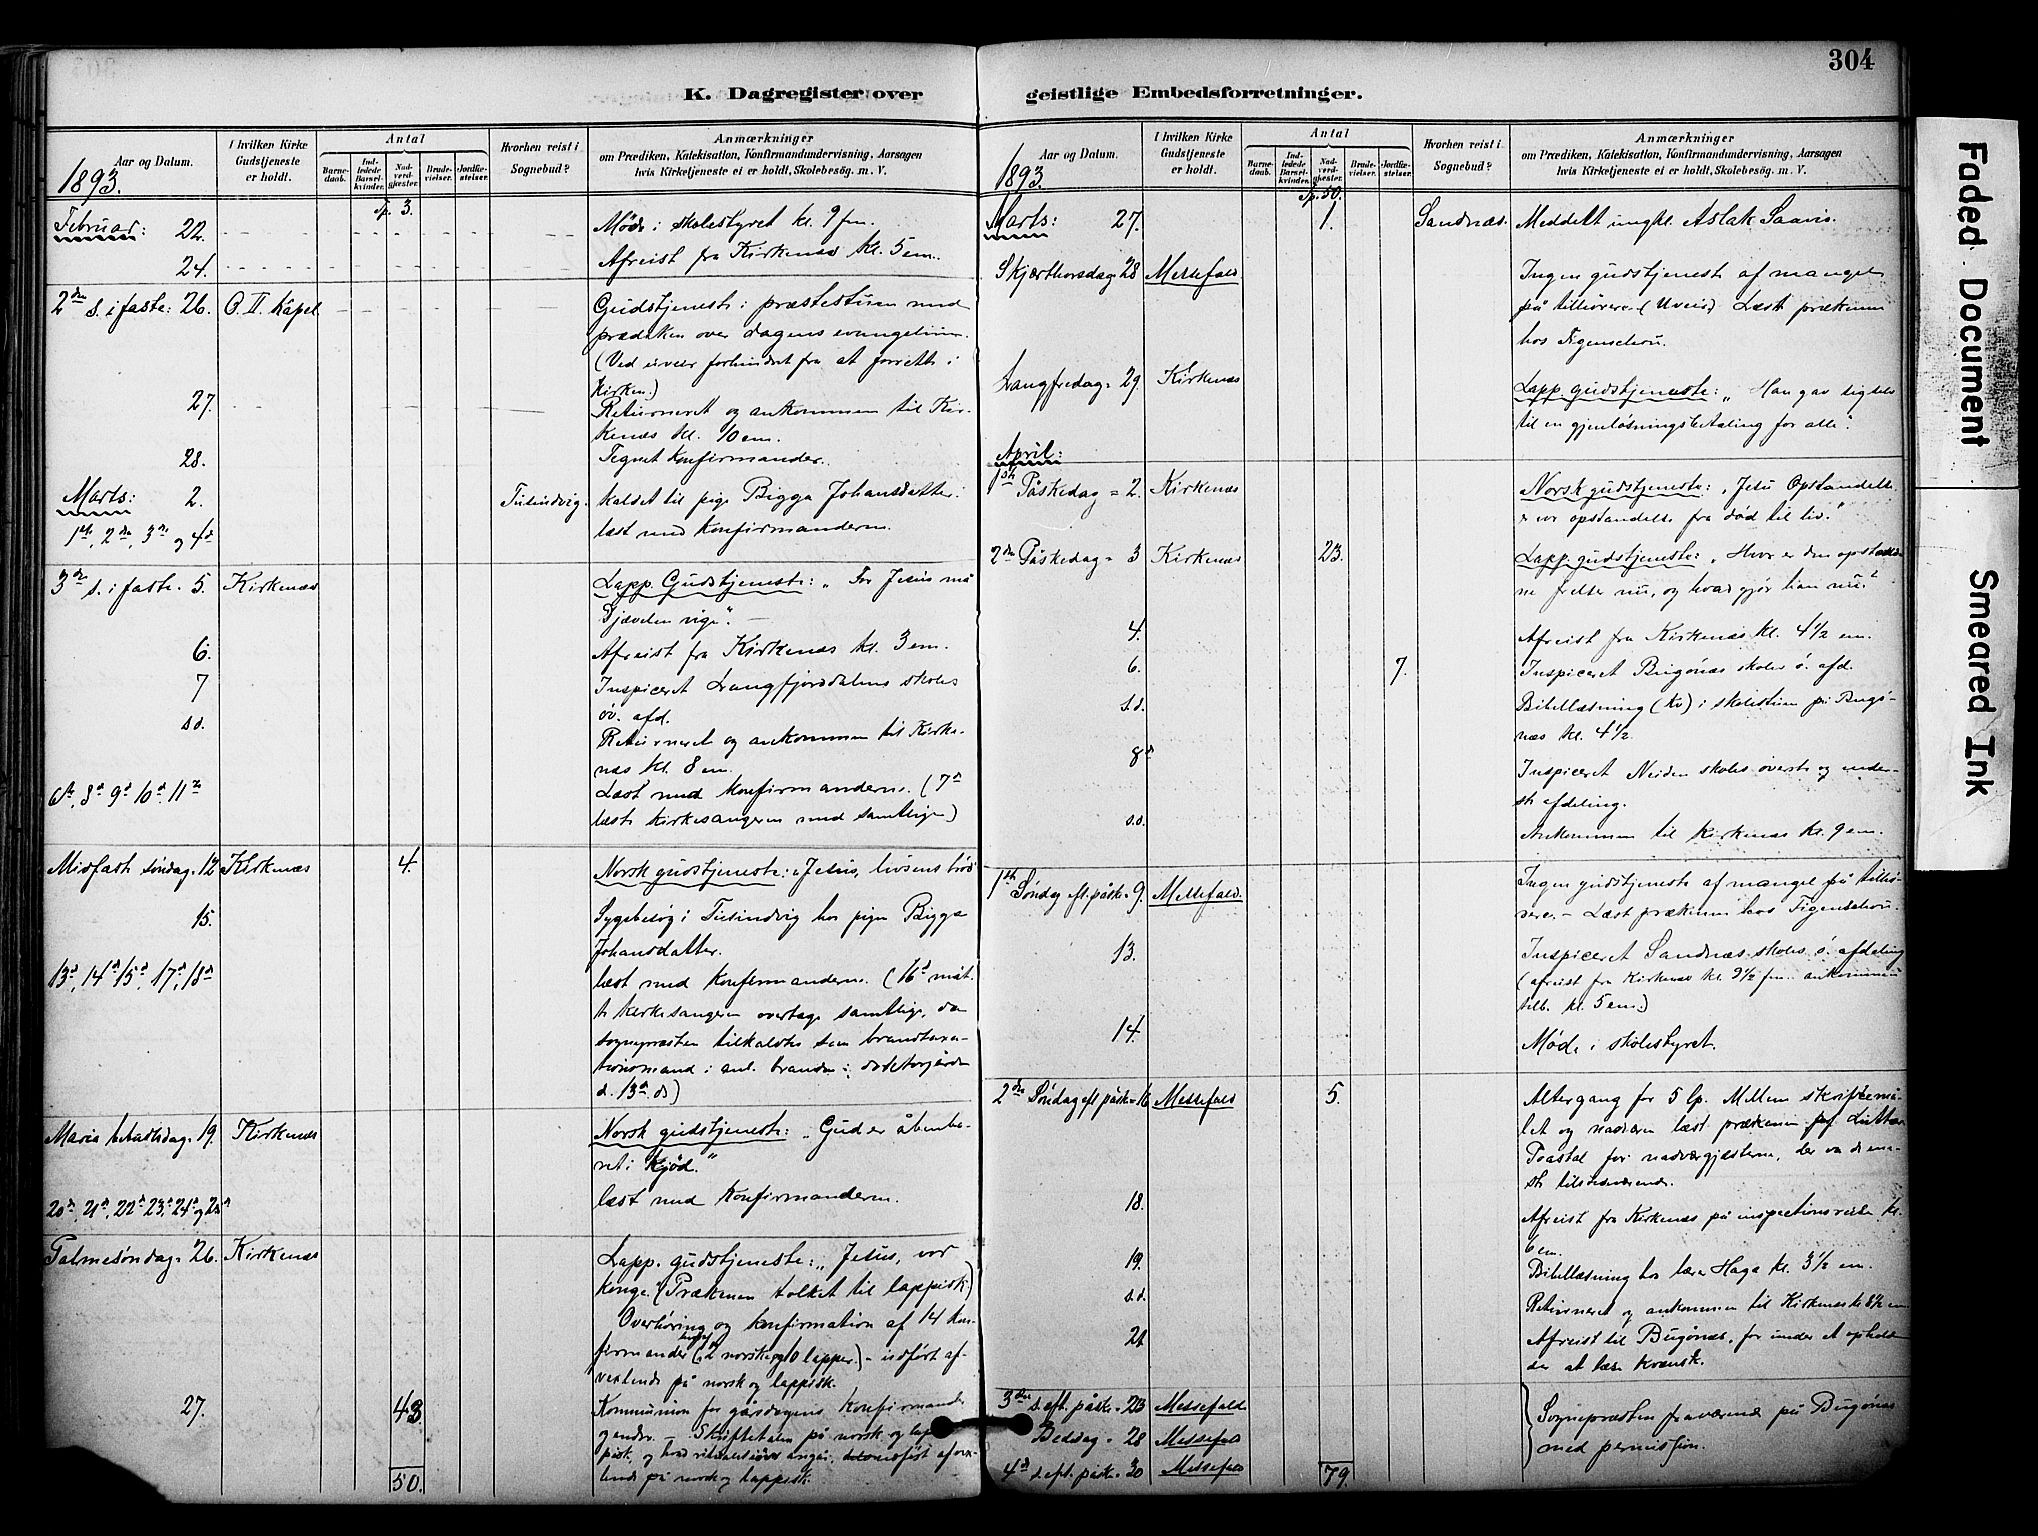 304
K. Dagregister over
Aar og Datum.
I hvilken Kirke Gudstjeneste er holdt.
Antal
Barne-daab.
Ind-ledede Barsel-kvinder.
Nad-verd-gjæster.
Brude-vielser.
Jordfæ-stelser.
Hvorhen reist i Sognebud?
Anmærkninger
om Prædiken, Katekisation, Konfirmandundervisning, Aarsagen
hvis Kirketjeneste ei er holdt, Skolebesøg. m. V.
1893.
Tp. 3.
Februar: 22. Møde i skolestyret kl. 9 fm.
24. Afreist fra Kirkenæs kl. 5 em.
2den s. i faste: 26. O. II. Kapel Gudstjeneste i præstestuen med
prædiken over dagens evangelium.
(Ved uveir forhindret fra at forrette i
kirken.)
27. Returneret og ankommen til Kir-
kenæs kl. 10 em.
28. Tegnet Konfirmander.
Marts: 2. kaldet til pige Bigga Johansdatter.
1ste, 2den, 3die og 4de læst med Konfirmanderne.
3die s. i faste. 5. Kirkenæs Lapp. Gudstjeneste: „For Jesus må
Djævelen vige“.
6. Afreist fra Kirkenæs kl. 3 em.
7 Inspiceret Langfjorddalens skoles
øv. afd.
s.d. Returneret og ankommen til Kirke-
næs kl. 8 em.
6te, 8de, 9de, 10de, 11te Læst med Konfirmanderne. (7de
læste kirkesangeren med samtlige)
Midfaste søndag. 12 Kirkenæs 4. Norsk gudstjeneste: „Jesus, livsens brød
15. Sygebesøg i hos pigen Bigga
Johansdatter.
13de, 14de, 15de, 17de, 18de læst med Konfirmanderne. (16de måt-
te kirkesangeren overtage samtlige, da
sognepræsten tilkaldtes som brandtaxa-
tionsmand i anl. branden i
d. 13de ds)
Maria bebudelsdag. 19. Kirkenæs Norsk gudstjeneste: „Gud er åbenba-
ret i kjød.“
20de, 21de, 22de, 23de, 24de og 25de læst med Konfirmanderne.
Palmesøndag. 26. Kirkenæs Lapp. gudstjeneste: „Jesus, vor
konge“. (Prækenen tolket til lappisk.)
Overhøring og konfirmation af 14 kon-
firmander (2 norske og 10 lapper.) – udført af-
vexlende på norsk og lappisk.
27. 43 Kommunion for gårsdagens Konfirmander
og andre. – Skriftetalen på norsk og lap-
pisk, og hvad angår, afvex-
lende på norsk og lappisk.
50.
geistlige Embedsforretninger.
Aar og Datum.
I hvilken Kirke Gudstjeneste er holdt.
Antal
Barne-daab.
Ind-ledede Barsel-kvinder.
Nad-verd-gjæster.
Brude-vielser.
Jordfæ-stelser.
Hvorhen reist i Sognebud?
Anmærkninger
om Prædiken, Katekisation, Konfirmandundervisning, Aarsagen
hvis Kirketjeneste ei er holdt, Skolebesøg. m. V.
1893.
Tp. 50.
Marts: 27. 1. Sandnæs. Meddelt ungkl. Aslak Saavis.
Skjærthorsdag 28 Messefald Ingen gudstjeneste af mangel
på tilhørere. (Uveir) Læst prækenen
hos Figenschou.
Langfredag. 29. Kirkenæs Lapp. gudstjeneste: „Han gav sig selv
til en gjenløsningsbetaling for alle“.
April:
1ste Påskedag = 2. Kirkenæs Norsk gudstjeneste: „Jesu Opstandelse
er vor opstandelse fra død til liv.“
2den Påskedag = 3 Kirkenæs 23. Lapp gudstjeneste: „Hvor er den opstand-
ne frelser nu, og hvad gjør han nu?“
4. Afreist fra Kirkenæs kl. 4½ em.
6. 7. Inspiceret Bugönæs skoles ö. afd.
s.d. Bibellæsning (kv) i skolestuen på Bugö-
næs kl. 4½.
8de Inspiceret Neiden skoles øverste og neder-
ste afdeling.
s.d. Ankommen til Kirkenæs kl. 9 em.
1ste Søndag eft. påske. 9. Messefald. Ingen gudstjeneste af mangel på tilhø-
rere. – Læst prækenen hos Figenschou.
13. Inspiceret Sandnæs skoles ö. afdeling
(afreist fra Kirkenæs kl. 9½ fm. ankommen
tilb. kl. 5 em.)
14. Møde i skolestyret.
2den Søndag eft påske. 16 Messefald 5. Altergang for 5 lp. Mellem skriftemå-
let og nadveren læst prækenen
Poastal for nadvergjæsterne, der va de ene-
ste tilstedeværende.
18. Afreist fra Kirkenæs på inspectionsreise kl.
6 em.
19. Bibellæsning hos lærer Haga kl. 3½ em.
s.d. Returneret og ankommen til Kirkenæs kl. 8½ em
21. Afreist til Bugönæs, for under et ophold
der at lære kvænsk.
3die s. eft. påske. 23 Messefald
Beddag. 28 Messefald Sognepræsten fraværende på Bugönæs
4de s. eft. påske. 30 Messefald 79. med permission.
Faded Document
Smeared Ink